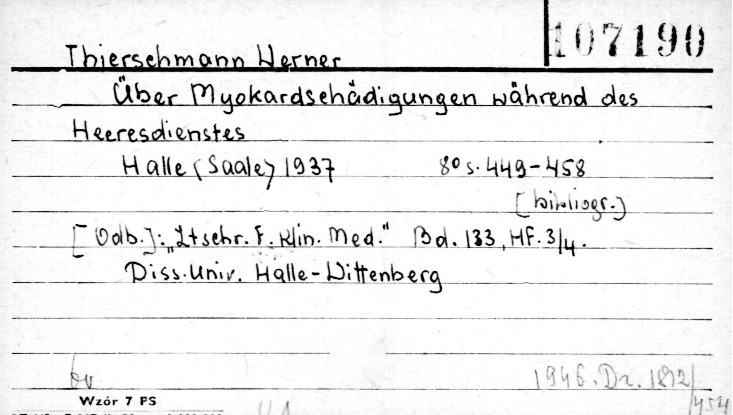 107190
Thierschmann Werner
Über Myokardschädigungen während des
Heeresdienstes
Halle (Saale) 1937 8° s. 449-458
[bibliogr.]
[Odb.]: "Ztschr. F. Klin. Med." Bd. 133, Hf. 3/4.
Diss. Univ. Halle-Wittenberg
1946. Dr. 1812/454
Wzór 7 PS